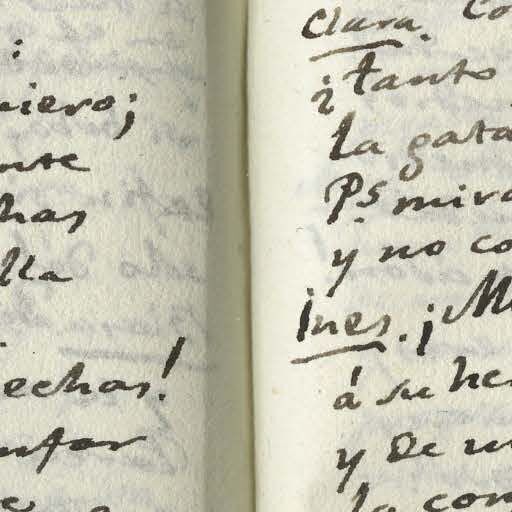 :
niero;
nte
has
lla
echas!
ntar
Clara. Co
¿tanto
la gata
Ps. mira
y no co
ines. ¡M
á su he
y de u
la com